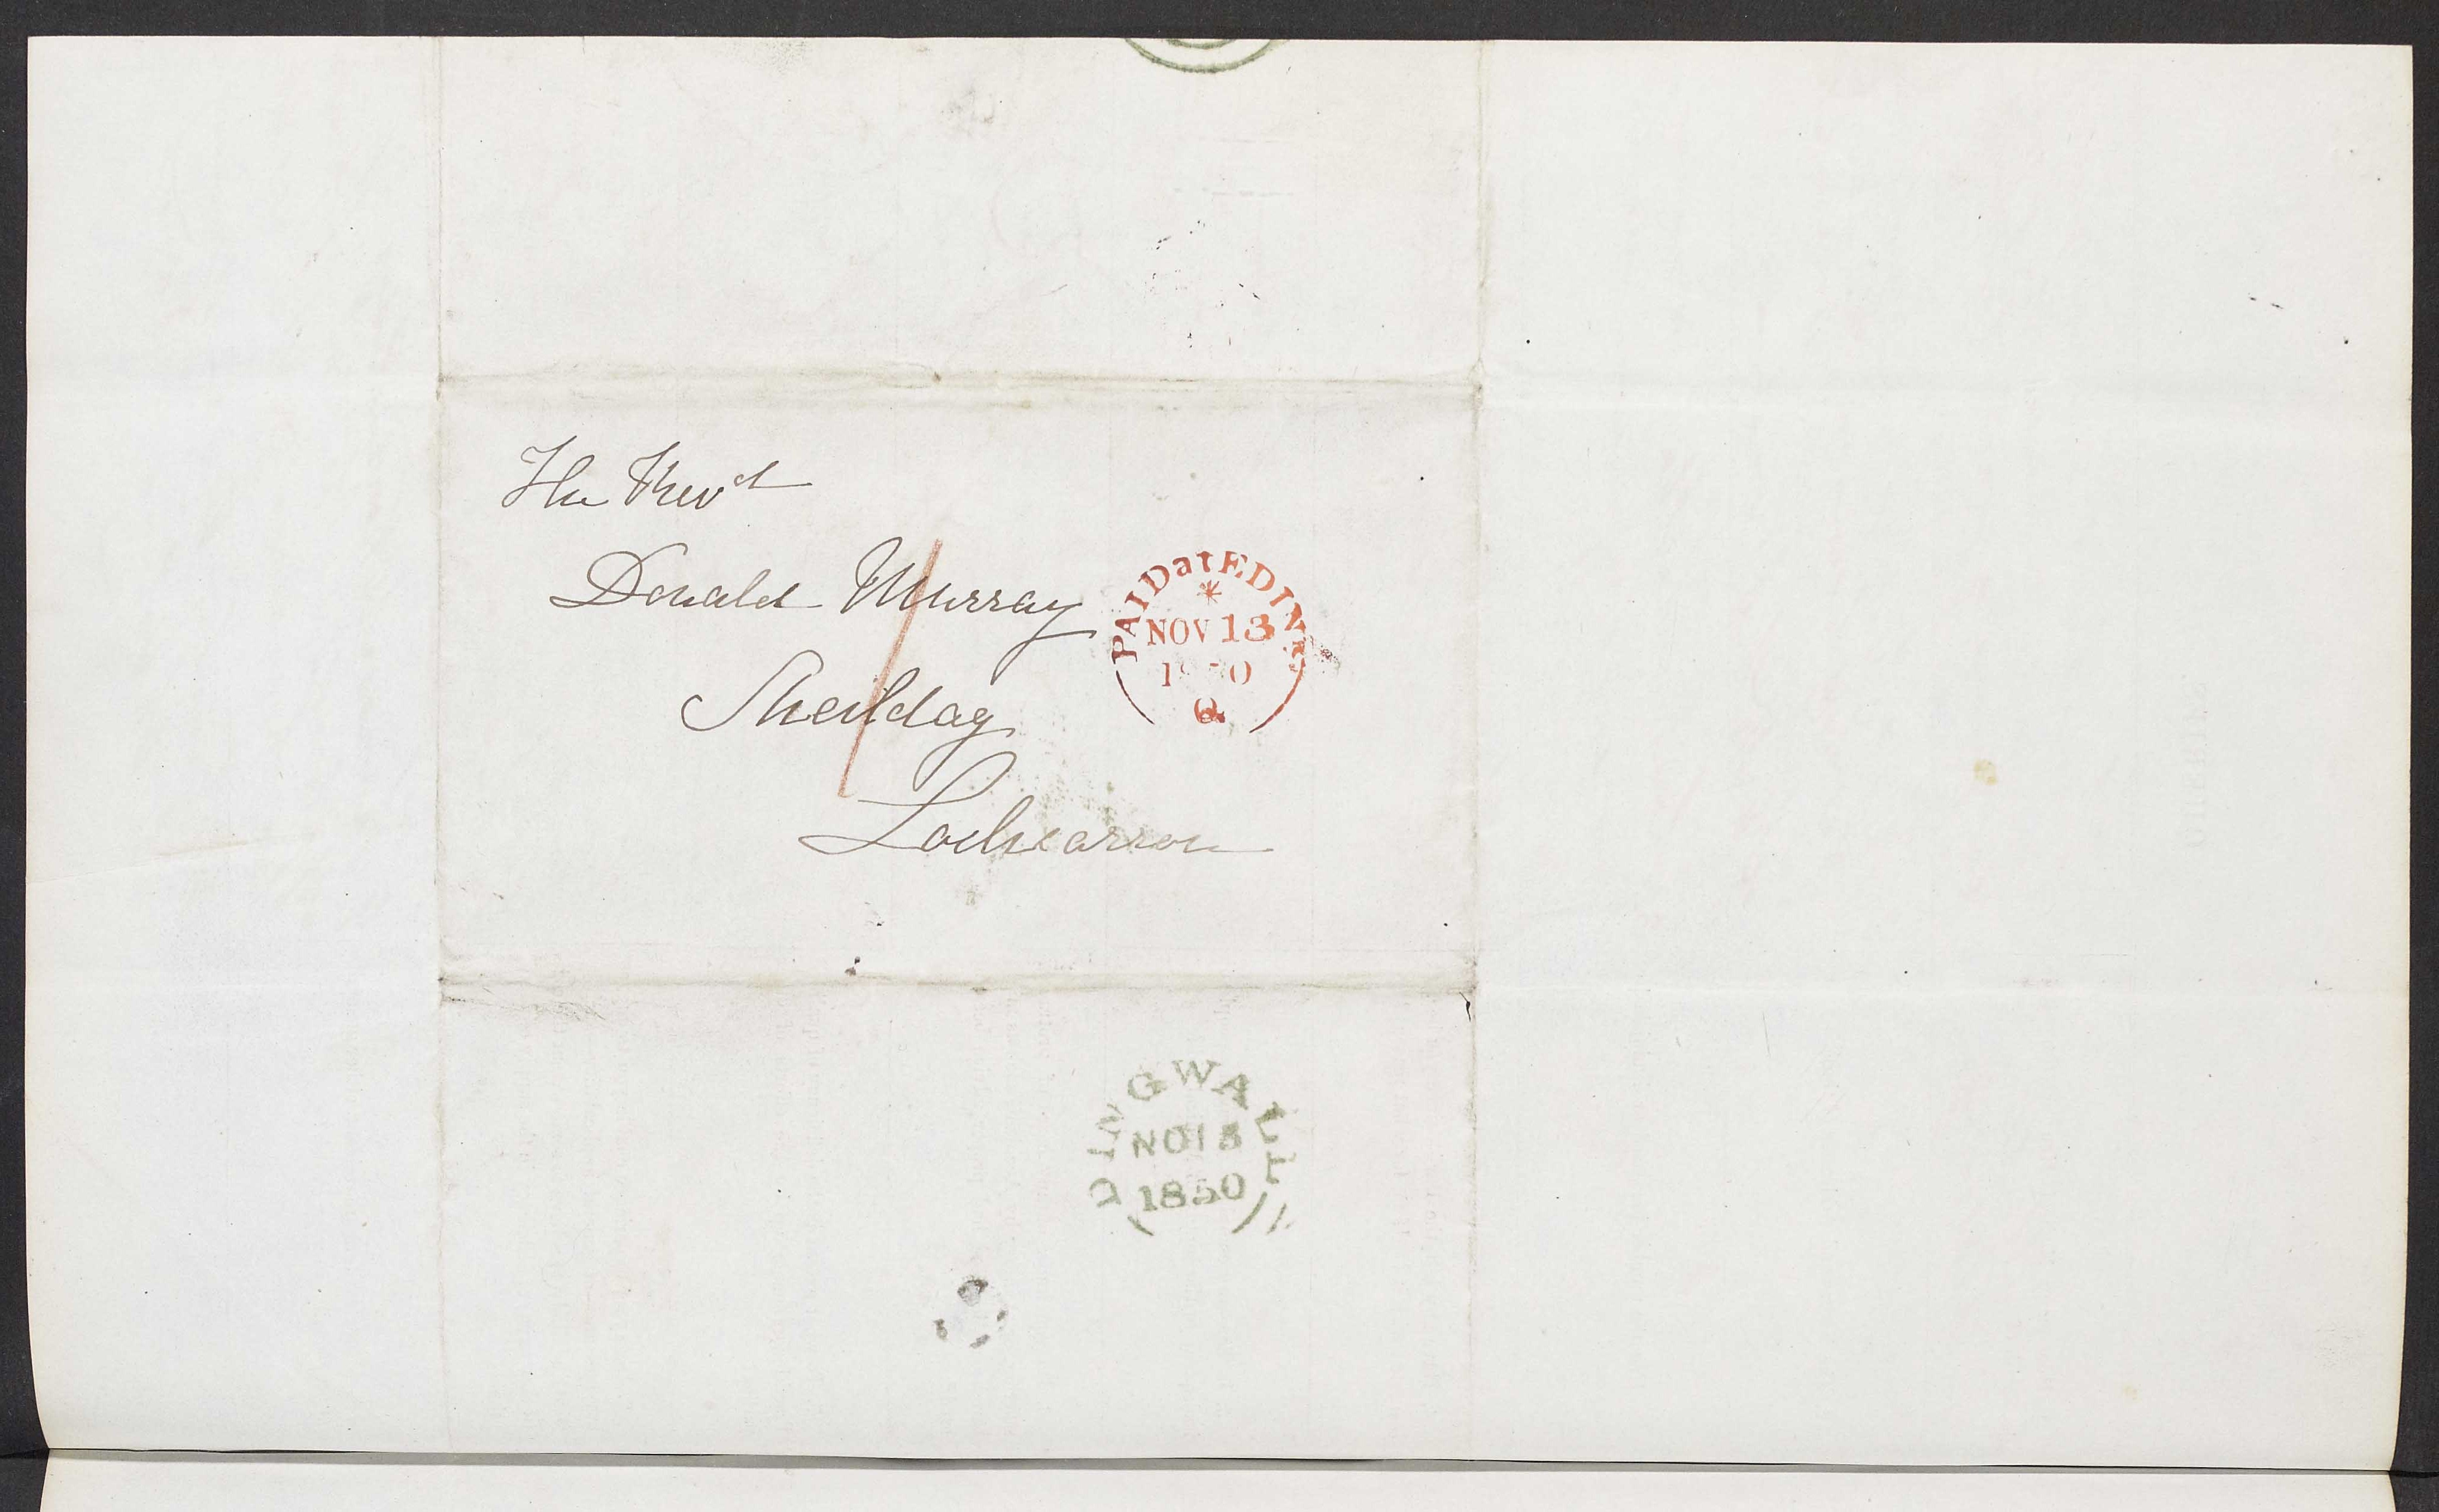 The Revd
Donald Murray
Sheildag
Lochcarron
PAID at EDINR
NOV 13
1850
Q
DINGWALL
NO 15
1850